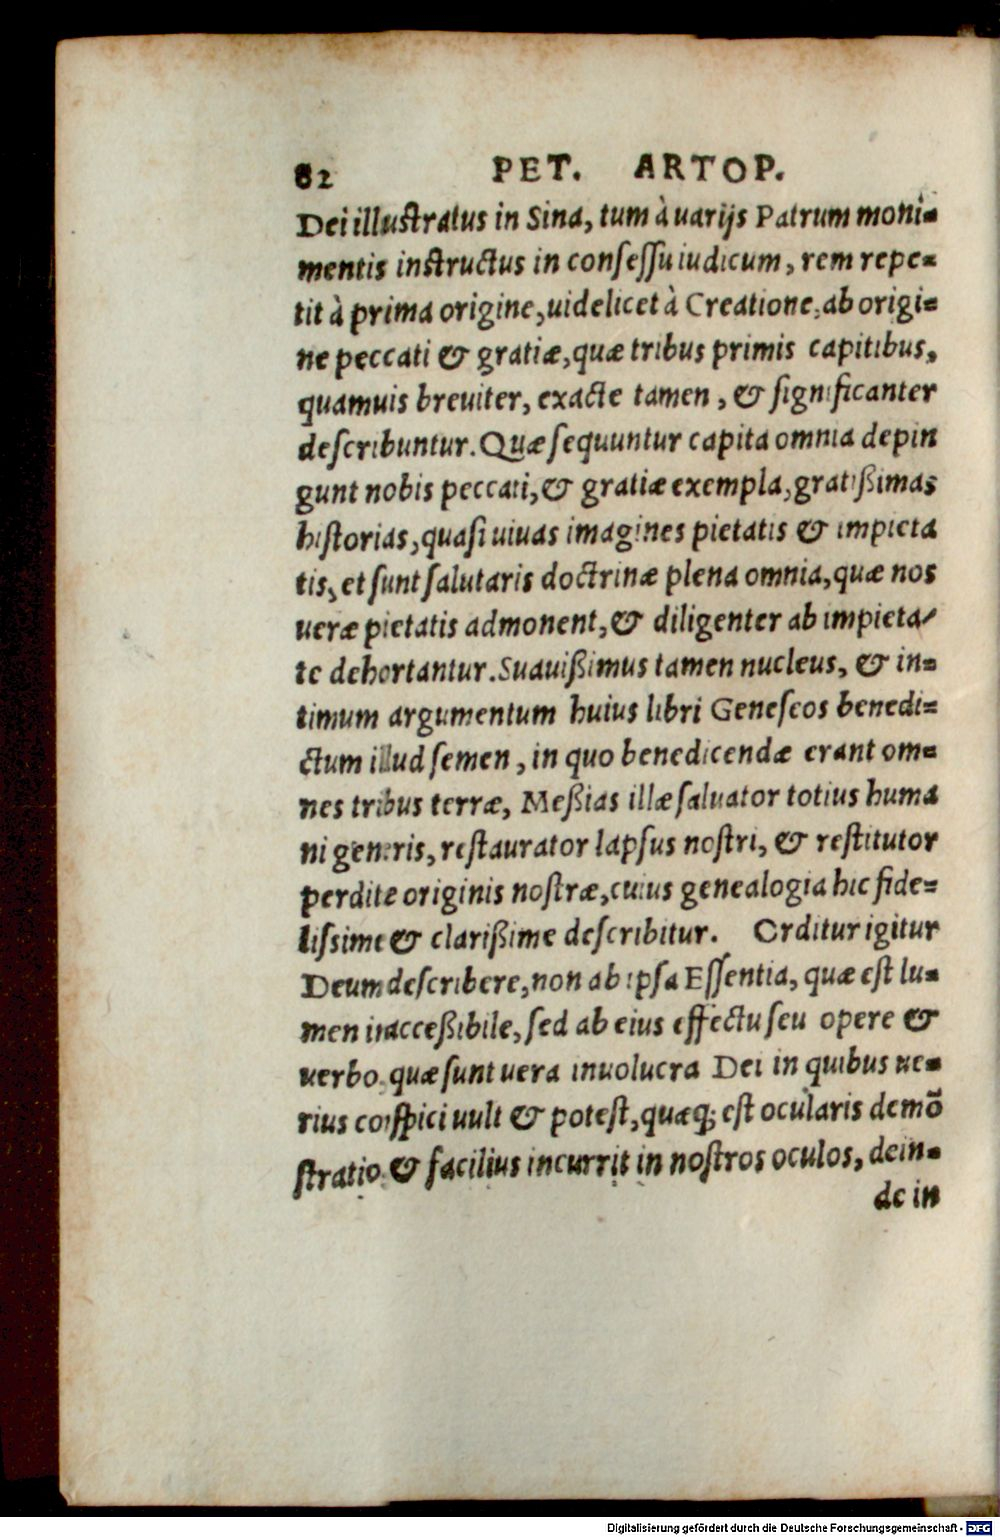 82 PET. ARTOP.
Dei illuſtratus in Sina, tum à uarijs Patrum moni-
mentis inſtructus in conſeſſu iudicum, rem repe-
tit à prima origine, uidelicet à Creatione, ab origi-
ne peccati & gratiæ, quæ tribus primis capitibus,
quamuis breuiter, exacte tamen, & ſignificanter
deſcribuntur. Quæ ſequuntur capita omnia depin
gunt nobis peccati, & gratiæ exempla, gratißimas
hiſtorias, quaſi uiuas imagines pietatis & impieta
tis, et ſunt ſalutaris doctrinæ plena omnia, quæ nos
ueræ pietatis admonent, & diligenter ab impieta-
te dehortantur. Suauißimus tamen nucleus, & in-
timum argumentum huius libri Geneſeos benedi-
ctum illud ſemen, in quo benedicendæ erant om-
nes tribus terræ, Meßias illæ ſaluator totius huma
ni generis, reſtaurator lapſus noſtri, & reſtitutor
perdite originis noſtræ, cuius genealogia hic fide-
liſsime & clarißime deſcribitur. Orditur igitur
Deum deſcribere, non ab ipſa Eſſentia, quæ eſt lu-
men inacceßibile, ſed ab eius effectu ſeu opere &
uerbo, quæ ſunt uera inuolucra Dei in quibus ue-
rius conſpici uult & poteſt, quæq; eſt ocularis demõ
ſtratio & facilius incurrit in noſtros oculos, dein-
de in
Digitalisierung gefördert durch die Deutsche Forschungsgemeinschaft - DFG